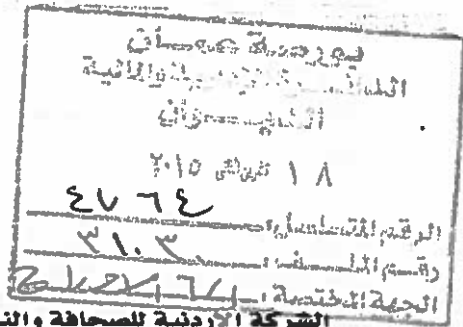 بورصة عمان
الدائرة الإدارية والمالية
الديوان
١٨ تشرين الثاني ٢٠١٥
الرقم المتسلسل: ٤٧٦٤
رقم الملف: ٣١٠٣
الجهة المختصة:
الشركة الأردنية للصحافة والنشر